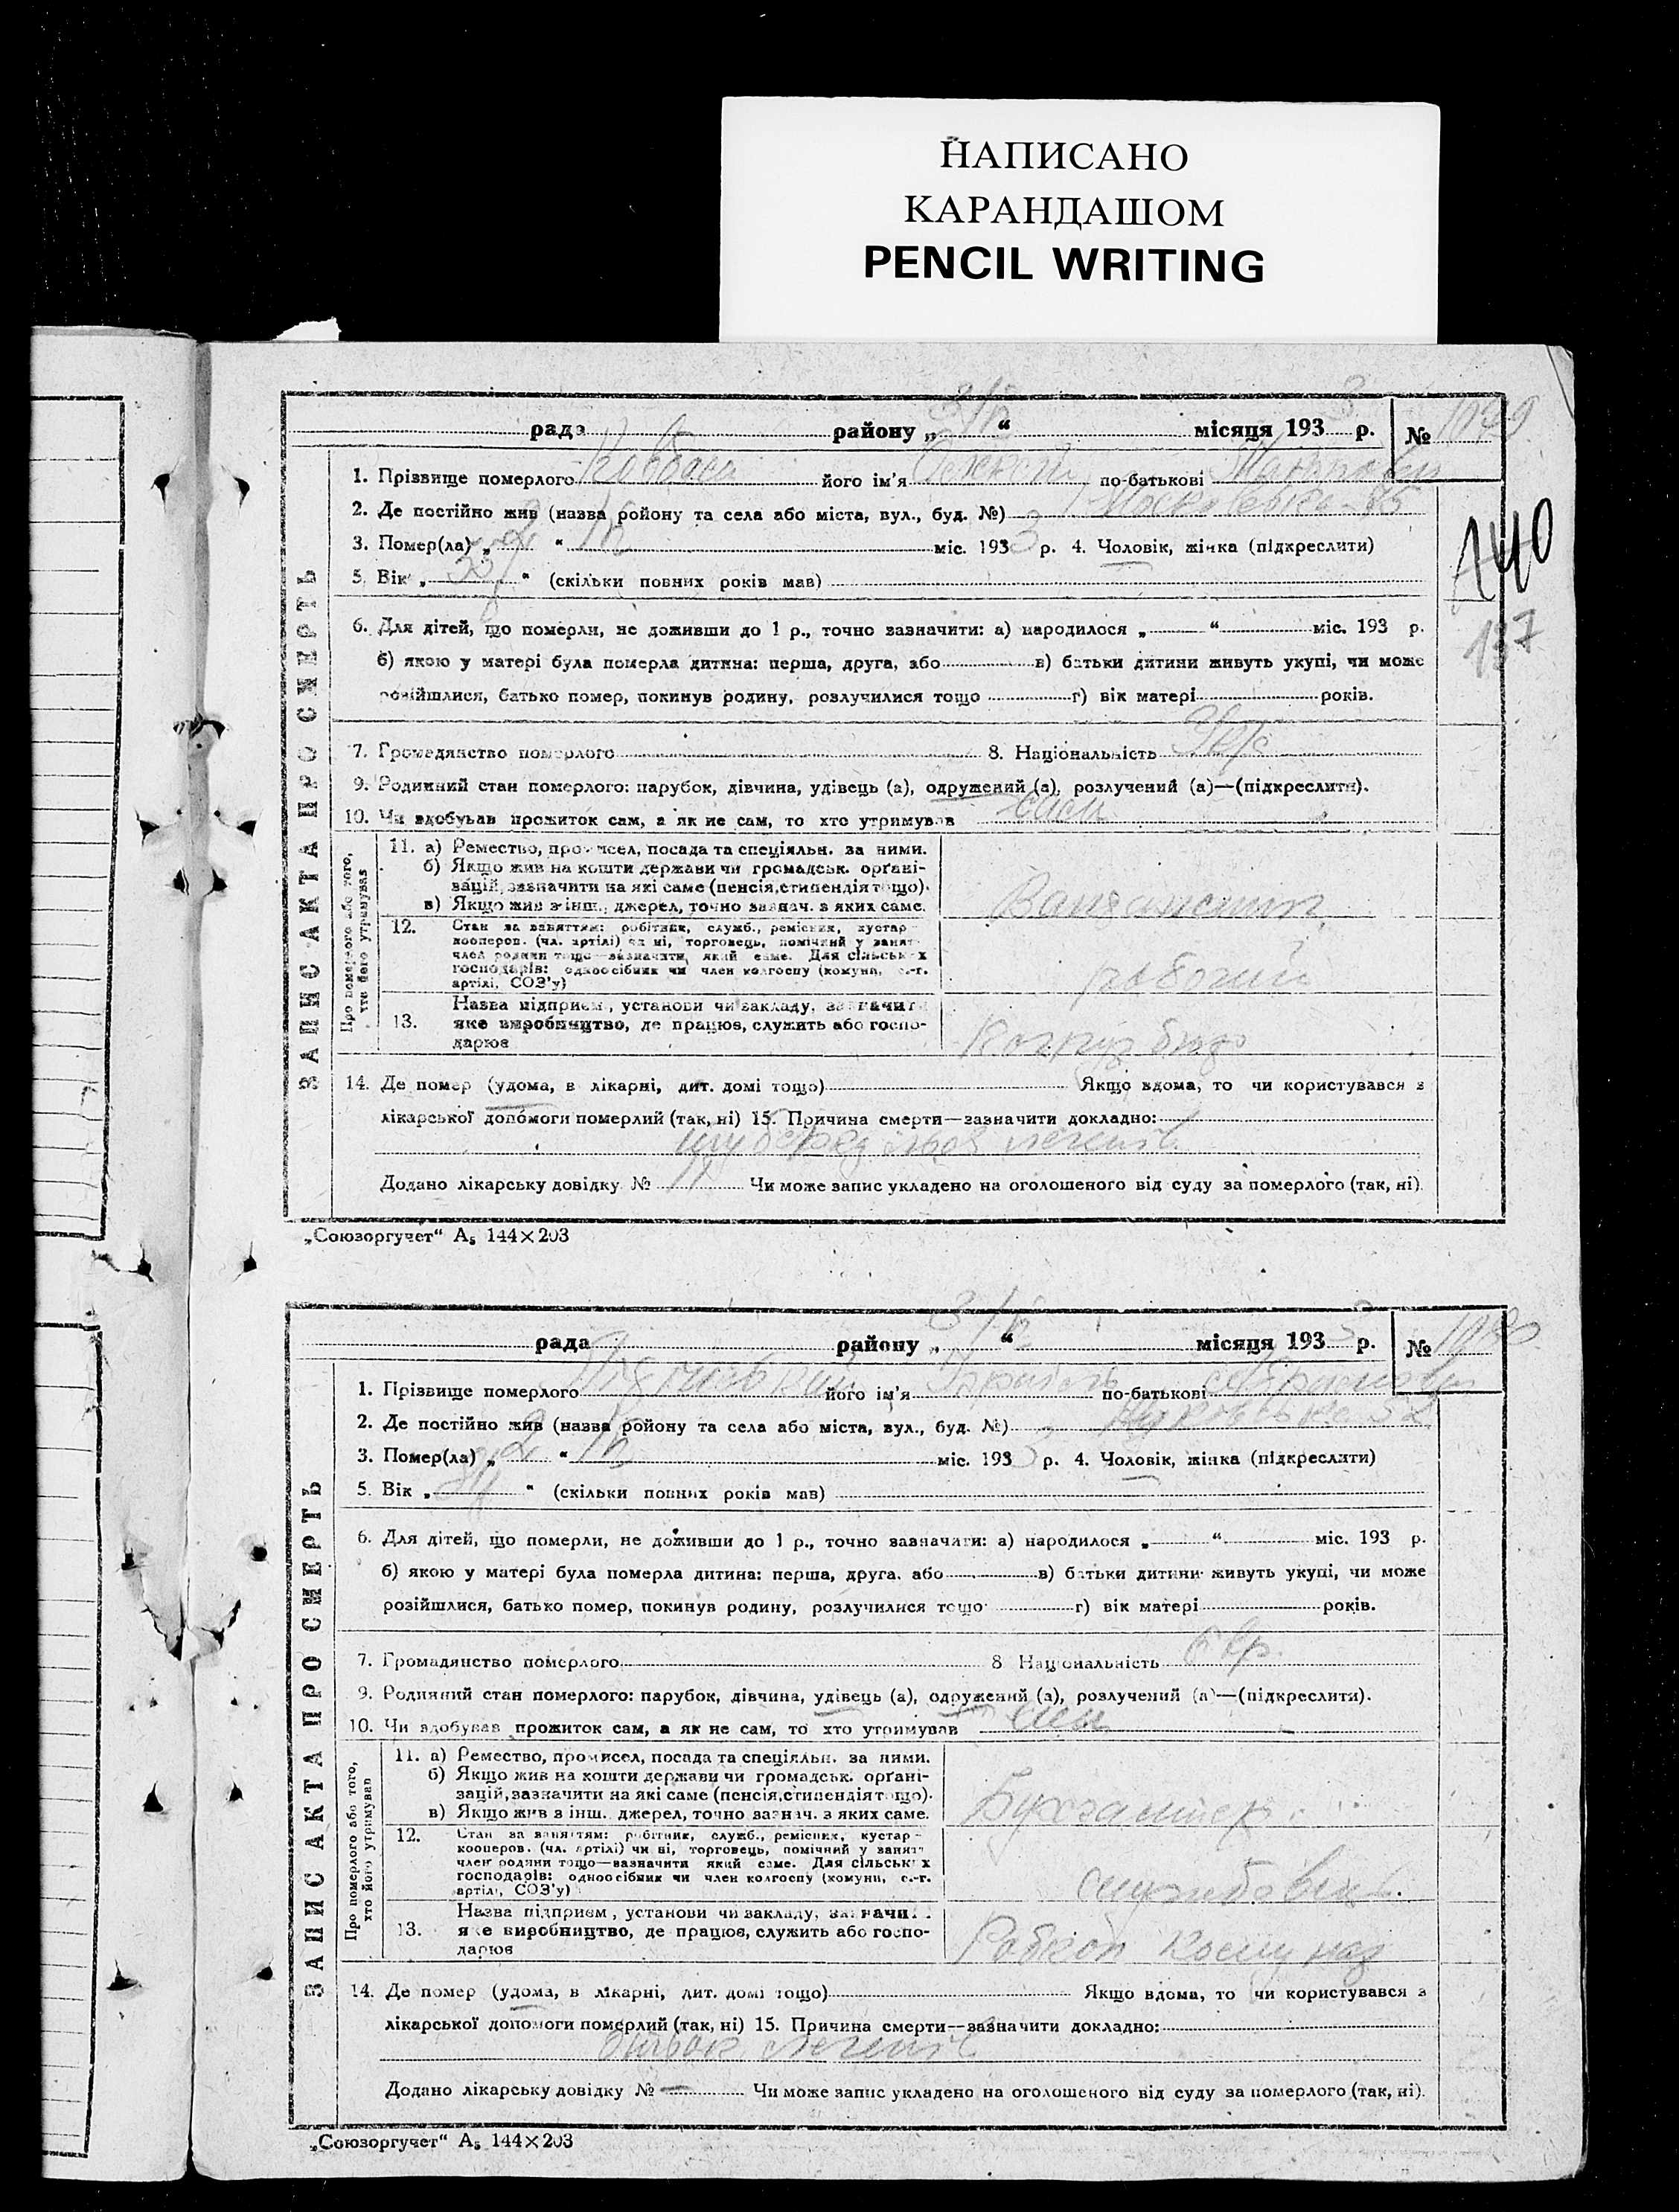 НАПИСАНО
КАРАНДАШОМ
PENCIL WRITING
рада району „ “ місяця 193 3 р. №
1. Прізвище померлого його ім'я по-батькові
2. Де постійно жив (назва ройону та села або міста, вул., буд. №) 85
3. Помер(ла) „ 2 “ міс. 193 3 р. 4. Чоловік, жінка (підкреслити)
5. Вік „ “ (скільки повних років мав)
140
137
6. Для дітей, що померли, не доживши до 1 р., точно зазначити: а) народилося „ “ міс. 193 р.
б) якою у матері була померла дитина: перша, друга, або в) батьки дитини живуть укупі, чи може
розійшлися, батько помер, покинув родину, розлучилися тощо г) вік матері років.
7. Громадянство померлого 8. Національність
9. Родинний стан померлого: парубок, дівчина, удівець (а), одружений (а), розлучений (а)—(підкреслити).
10. Чи здобував прожиток сам, а як не сам, то хто утримував сам
ЗАПИС АКТА ПРО СМЕРТЬ
Про померлого або того,
хто його утримував
11. а) Ремество, промисел, посада та спеціяльн. за ними.
б) Якщо жив на кошти держави чи громадськ. орґані-
зацій, зазначити на які саме (пенсія, стипендія тощо).
в) Якщо жив з інш. джерел, точно зазнач. з яких саме.
Вантажник
12. Стан за заняттям: робітник, служб., ремісник, кустар
кооперов. (чл. артілі) чи ні, торговець, помічний у занят.
член родини тощо—зазначити який саме. Для сільських
господарів: одноосібник чи член колгоспу (комуни, с.-г.
артілі, СОЗ'у)
робочий
Назва підприєм., установи чи закладу, зазначити
13. яке виробництво, де працює, служить або госпо-
дарює
14. Де помер (удома, в лікарні, дит. домі тощо) Якщо вдома, то чи користувався з
лікарської допомоги померлий (так, ні) 15. Причина смерти—зазначити докладно:
легенів
Додано лікарську довідку № Чи може запис укладено на оголошеного від суду за померлого (так, ні).
„Союзоргучет“ А5 144×203
рада району „ “ місяця 193 3 р. №
1. Прізвище померлого його ім'я по-батькові
2. Де постійно жив (назва ройону та села або міста, вул., буд. №) 52
3. Помер(ла) „ 2 “ міс. 193 3 р. 4. Чоловік, жінка (підкреслити)
5. Вік „ “ (скільки повних років мав)
6. Для дітей, що померли, не доживши до 1 р., точно зазначити: а) народилося „ “ міс. 193 р.
б) якою у матері була померла дитина: перша, друга, або в) батьки дитини живуть укупі, чи може
розійшлися, батько помер, покинув родину, розлучилися тощо г) вік матері років.
7. Громадянство померлого 8 Національність Євр.
9. Родинний стан померлого: парубок, дівчина, удівець (а), одружений (а), розлучений (а)—(підкреслити).
10. Чи здобував прожиток сам, а як не сам, то хто утримував сам
ЗАПИС АКТА ПРО СМЕРТЬ
Про померлого або того,
хто його утримував
11. а) Ремество, промисел, посада та спеціяльн. за ними.
б) Якщо жив на кошти держави чи громадськ. орґані-
зацій, зазначити на які саме (пенсія, стипендія тощо).
в) Якщо жив з інш. джерел, точно зазнач. з яких саме.
Бухгалтер
12. Стан за заняттям: робітник, служб., ремісник, кустар
кооперов. (чл. артілі) чи ні, торговець, помічний у занят.
член родини тощо—зазначити який саме. Для сільських
господарів: одноосібник чи член колгоспу (комуни, с.-г.
артілі, СОЗ'у)
Назва підприєм., установи чи закладу, зазначити
13. яке виробництво, де працює, служить або госпо-
дарює
14. Де помер (удома, в лікарні, дит. домі тощо) Якщо вдома, то чи користувався з
лікарської допомоги померлий (так, ні) 15. Причина смерти—зазначити докладно:
легенів
Додано лікарську довідку № — Чи може запис укладено на оголошеного від суду за померлого (так, ні).
„Союзоргучет“ А5 144×203